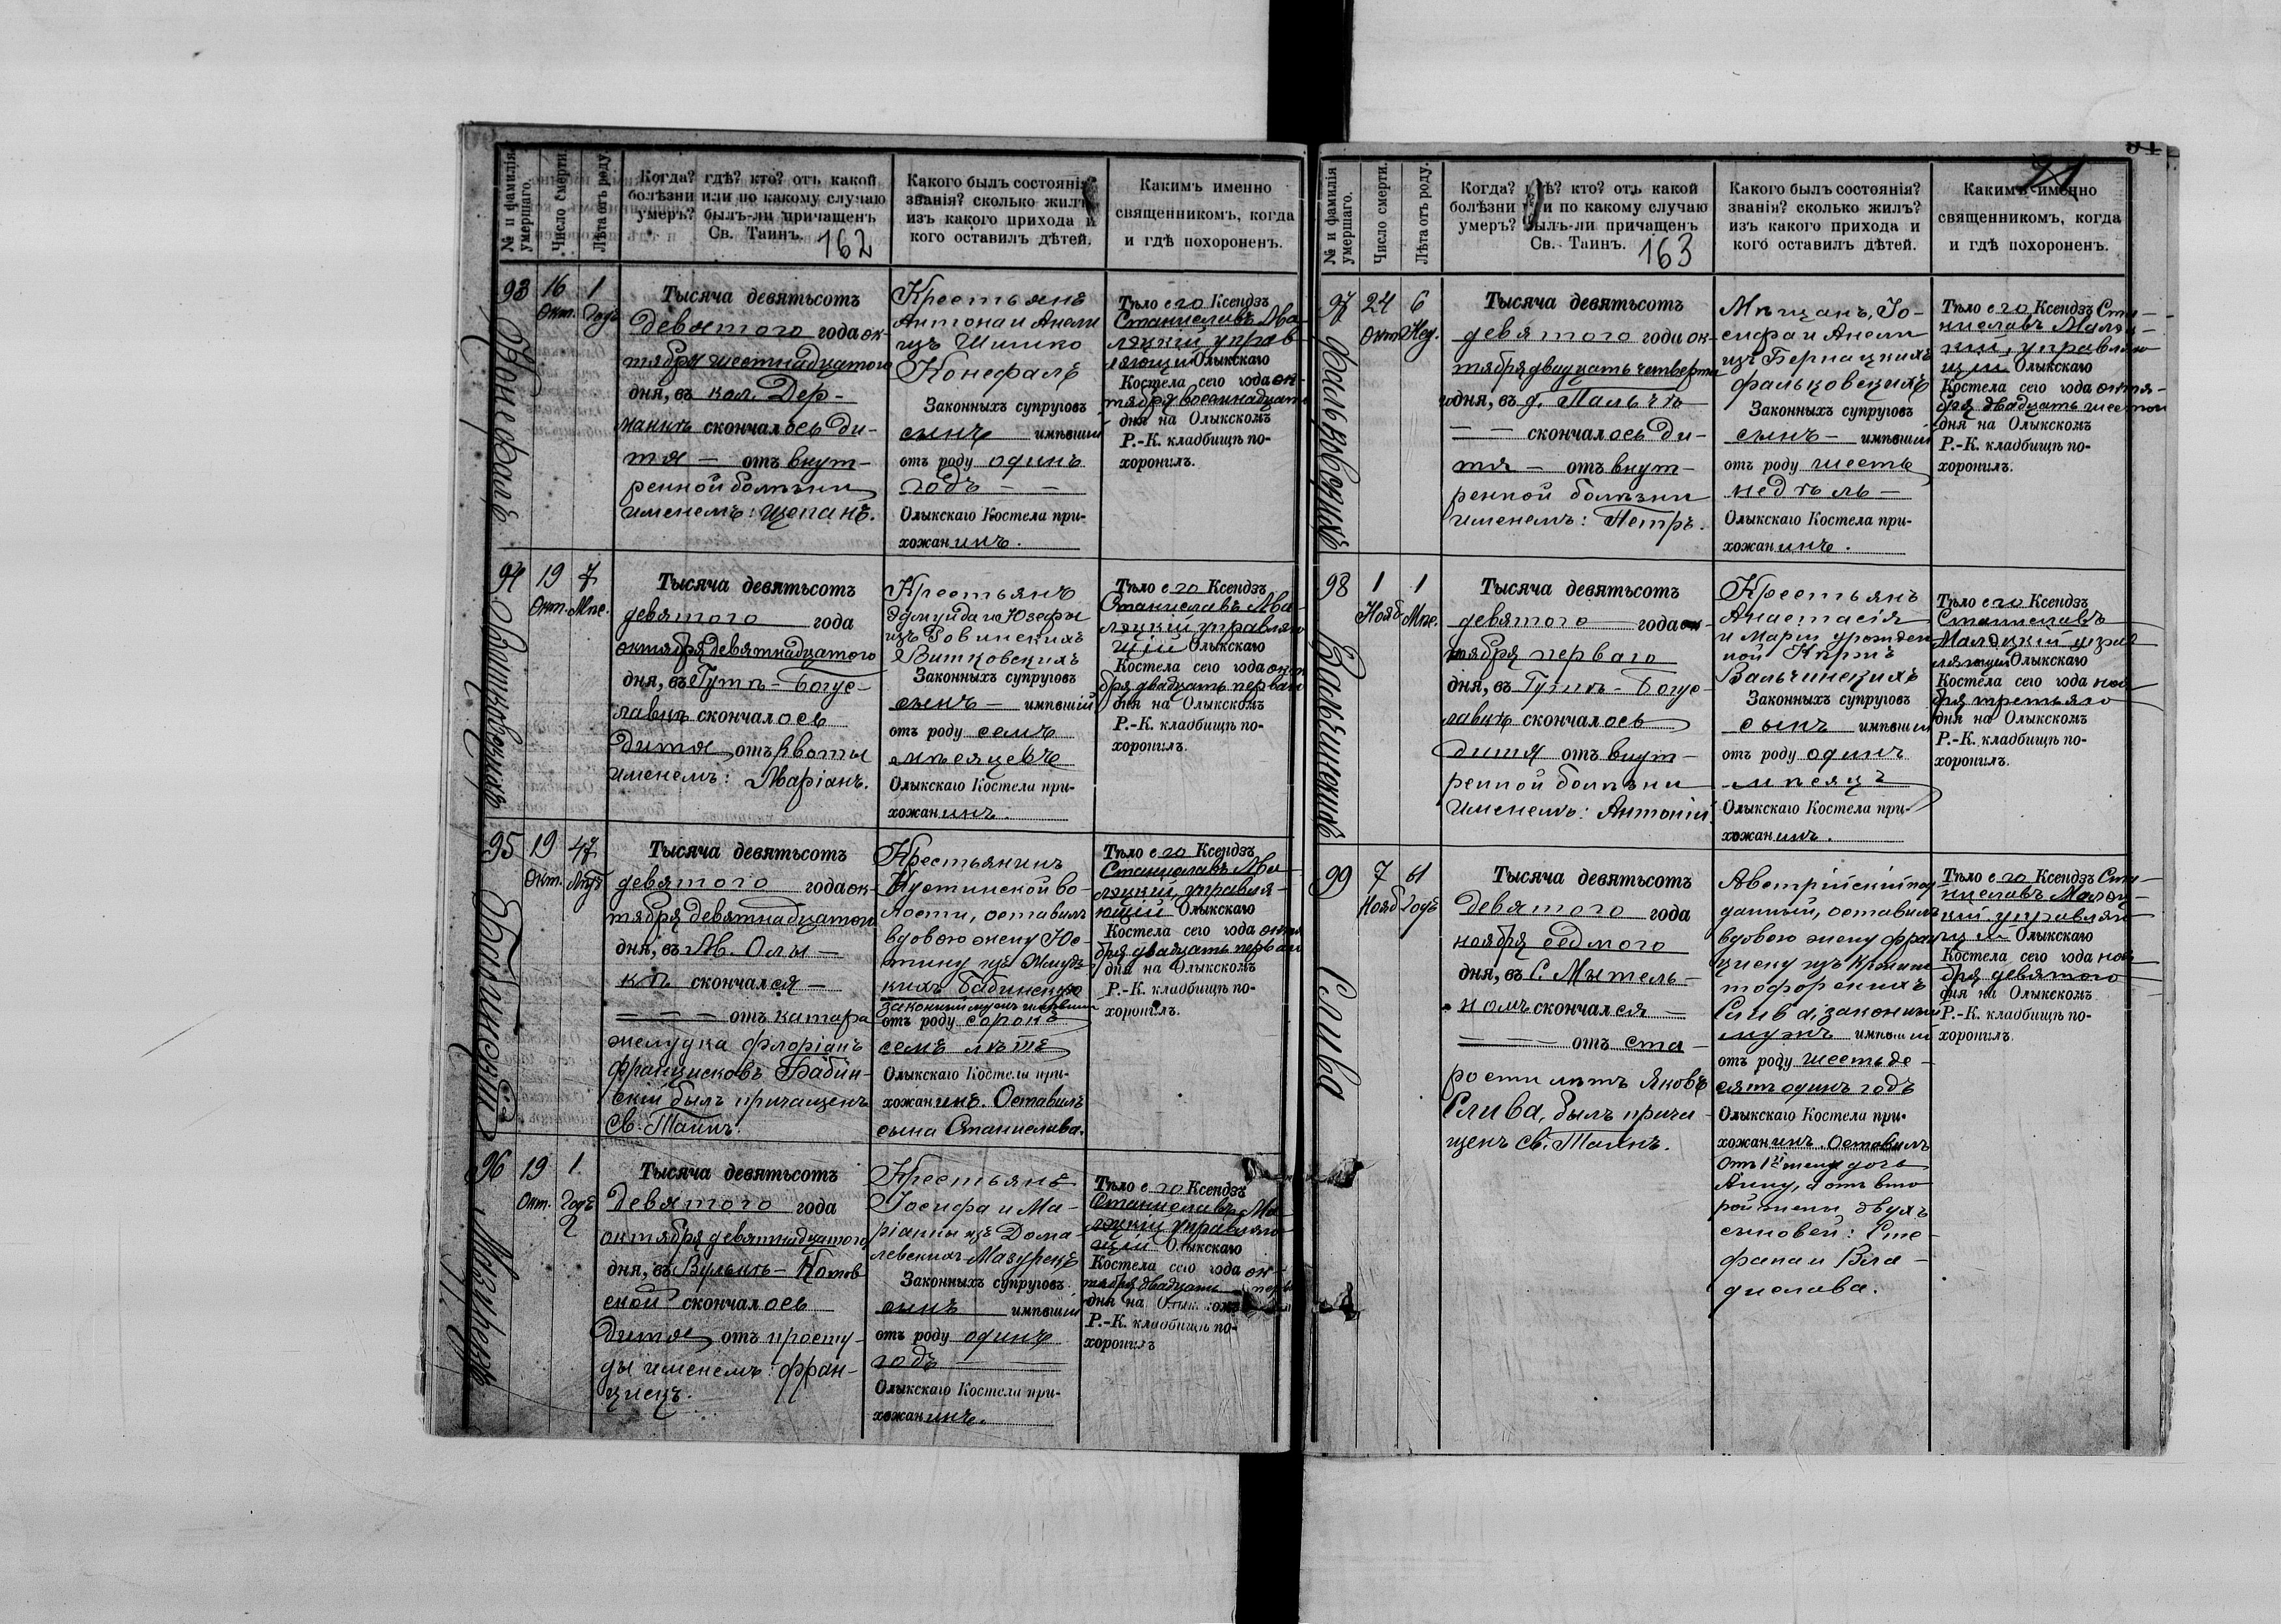 № и фамилія умершаго.
Число смерти.
Лѣта отъ роду.
Когда? гдѣ? кто? отъ какой
болѣзни или по какому случаю
умеръ? былъ-ли причащенъ
Св. Таинъ.
162
Какого былъ состоянія
званія? сколько жилъ
изъ какого прихода и
кого оставилъ дѣтей.
Какимъ именно
священникомъ, когда
и гдѣ похороненъ.
93
Конефалъ
16 Окт.
1 Годъ
Тысяча девятьсотъ
девятого года ок-
тября шестнадцатого
дня, въ кол. Дер-
манкѣ скончалось ди-
тя — отъ внут-
ренной болѣзни
именемъ: Щепанъ.
Крестьянъ
Антона и Анели
изъ Шишко
Конефалъ
Законныхъ супруговъ
сынъ имѣвшій
отъ роду одинъ
годъ — —
Олыкскаго Костела при-
хожанинъ.
Тѣло его Ксендзъ
Станиславъ Ма-
лэцкій управ
ляющій Олыкскаго
Костела сего года ок-
тября восемнадцати
дня на Олыкскомъ
Р.-К. кладбищѣ по-
хоронилъ.
94
Витковскихъ
19 Окт.
7 Мѣс.
Тысяча девятьсотъ
девятого года
октября девятнадцатого
дня, въ Гутѣ-Богус-
лавкѣ скончалось
дитя отъ рвоты
именемъ: Маріанъ.
Крестьянъ
Эдмунда и Юзефы
изъ Ровинскихъ
Витковскихъ
Законныхъ супруговъ
сынъ — имѣвшій
отъ роду семъ
мѣсяцевъ
Олыкскаго Костела при-
хожанинъ.
Тѣло его Ксендзъ
Станиславъ Ма-
лэцкій управляю
щій Олыкскаго
Костела сего года октя
бря двадцать перваго
дня на Олыкскомъ
Р.-К. кладбищѣ по-
хоронилъ.
95
Бабинскій
19 Окт.
47 Лѣтъ
Тысяча девятьсотъ
девятого года ок-
тября девятнадцатого
дня, въ М. Олы —
кѣ скончался —
— — — отъ катара
желудка Флоріанъ
Францисковъ Бабин-
скій былъ причащенъ
Св. Таинъ.
Крестьянинъ
вo-
лости, оставилъ
вдовою жену Юс-
тину изъ Жмудз-
кихъ Бабинскую
законный мужъ имѣвшій
отъ роду сорокъ
семъ лѣтъ
Олыкскаго Костела при-
хожанинъ. Оставилъ
сына Станислава.
Тѣло его Ксендзъ
Станиславъ Ма-
лэцкій, управля-
ющій Олыкскаго
Костела сего года октя
бря двадцать перваго
дня на Олыкскомъ
Р.-К. кладбищѣ по-
хоронилъ.
96
Мазурекъ
19 Окт.
1 Годъ
Тысяча девятьсотъ
девятого года
октября девятнадцатого
дня, въ Вулькѣ-Котов
ской скончалось
дитя отъ просту-
ды именемъ: Фран-
цисцъ.
Крестьянъ
Іосифа и Ма-
ріанны изъ Дома-
левскихъ Мазурекъ
Законныхъ супруговъ
сынъ имѣвшій
отъ роду одинъ
годъ
Олыкскаго Костела при-
хожанинъ.
Тѣло его Ксендзъ
Станиславъ Ма
лэцкій управляю
щій Олыкскаго
Костела сего года ок-
тября двадцать перв
дня на Олыкскомъ
Р.-К. кладбищѣ по-
хоронилъ
№ и фамилія умершаго.
Число смерти.
Лѣта отъ роду.
Когда? гдѣ? кто? отъ какой
болѣзни или по какому случаю
умеръ? былъ-ли причащенъ
Св. Таинъ.
163
Какого былъ состоянія?
званія? сколько жилъ?
изъ какого прихода и
кого оставилъ дѣтей.
Какимъ именно
священникомъ, когда
и гдѣ похороненъ.
97
Фальковскихъ
24 Окт
6 Нед.
Тысяча девятьсотъ
девятого года ок-
тября двадцать четверта
го дня, въ д. Пальче
— — скончалось ди-
тя — отъ внут-
ренной болѣзни
именемъ: Петръ.
Мѣщанъ, Іо-
сифа и Анели
изъ Бернацкихъ
Фальковскихъ
Законныхъ супруговъ
сынъ — имѣвшій
отъ роду шесть
недѣль —
Олыкскаго Костела при-
хожанинъ.
Тѣло его Ксендзъ Ста-
ниславъ Малэц-
кій, управляю
щій Олыкскаго
Костела сего года октя-
бря двадцать шестого
дня на Олыкскомъ
Р.-К. кладбищѣ по-
хоронилъ.
98
Вальчинскихъ
1 Нояб
1 Мѣс.
Тысяча девятьсотъ
девятого года
ноября перваго
дня, въ Гутѣ-Богус-
лавкѣ скончалось
дитя отъ внут-
ренной болѣзни
именемъ: Антоній
Крестьянъ
Анастасія
и Маріи урожден
ной
Вальчинскихъ
Законныхъ супруговъ
сынъ имѣвшій
отъ роду одинъ
мѣсяцъ
Олыкскаго Костела при-
хожанинъ.
Тѣло его Ксендзъ
Станиславъ
Малэцкій управ
ляющій Олыкскаго
Костела сего года ноя
бря третьяго
дня на Олыкскомъ
Р.-К. кладбищѣ по-
хоронилъ.
99
Слива
7 Нояб
61 Годъ
Тысяча девятьсотъ
девятого года
ноября седмого
дня, въ С. Мѣтель-
номъ скончался —
— — — отъ ста-
рости лѣтъ Яковъ
Слива, былъ прича-
щенъ Св. Таинъ.
Австрійскій под
данный, оставилъ
вдовою жену Фран
циску изъ
Слива, законный
мужъ имѣвшій
отъ роду шестьде-
сятъ одинъ годъ
Олыкскаго Костела при-
хожанинъ. Оставилъ
отъ 1й жены дочь
Анну, а отъ вто
рой жены двухъ
сыновей: Сте-
фана и Вла-
дислава.
Тѣло его Ксендзъ Ста-
ниславъ Малэц-
кій управляю
щій Олыкскаго
Костела сего года ноя
бря девятого
дня на Олыкскомъ
Р.-К. кладбищѣ по-
хоронилъ.